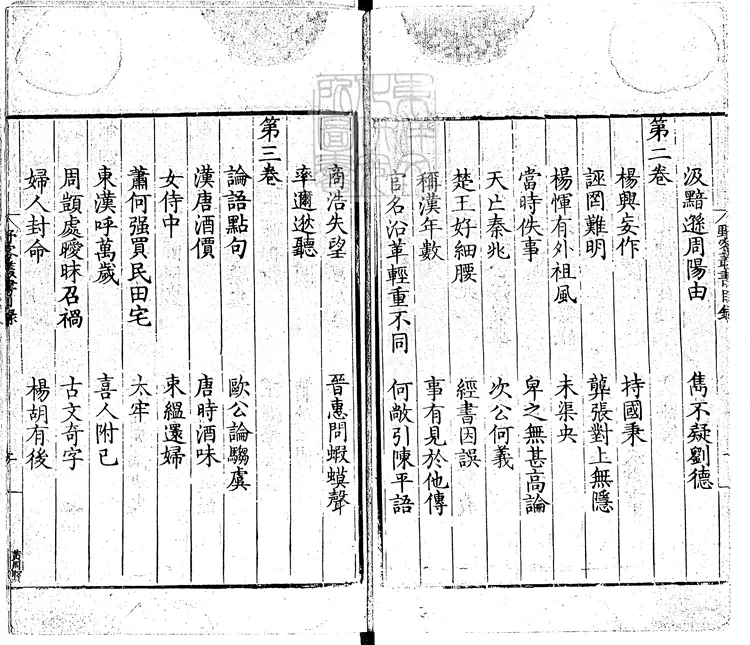 汲黯遜周陽由　雋不疑劉德
第二卷
楊興妄作　持國秉
誣罔難明　龔張對上無隱
楊惲有外祖風　未渠央
當時佚事　卑之無甚高論
天亡秦兆　次公何義
楚王好細腰　經書因誤
稱漢年數　事有見於他傳
官名沿革輕重不同　何敞引陳平語
商浩失望　晉惠問蝦蟆聲
率邇逖聽
第三卷
論語點句　歐公論騶虞
漢唐酒價　唐時酒味
女侍中　束縕還婦
蕭何强買民田宅　太牢
東漢呼萬歲　喜人附己
周顗處曖昧召禍　古文奇字
婦人封命　楊胡有後
野客叢書目錄